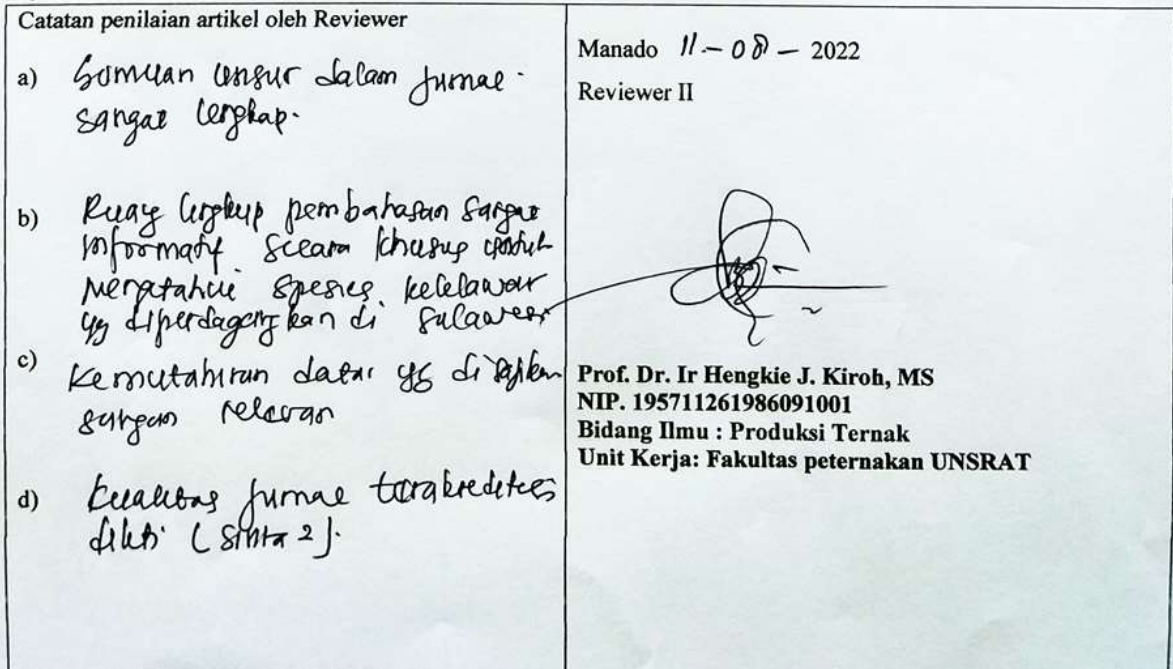 Catatan penilaian artikel oleh Reviewer
a) Semuan unsur dalam jurnal
sangat lengkap.
b) Ruang lingkup pembahasan sangat
informatif secara khusus untuk
mengetahui spesies kelelawar
yg diperdagangkan di Sulawesi
c) Kemutahiran data yg disajikan
sangan relevan
d) kualitas jurnal terakreditasi
dikti (Sinta 2).
Manado 11 - 08 - 2022
Reviewer II
Prof. Dr. Ir Hengkie J. Kiroh, MS
NIP. 195711261986091001
Bidang Ilmu : Produksi Ternak
Unit Kerja: Fakultas peternakan UNSRAT